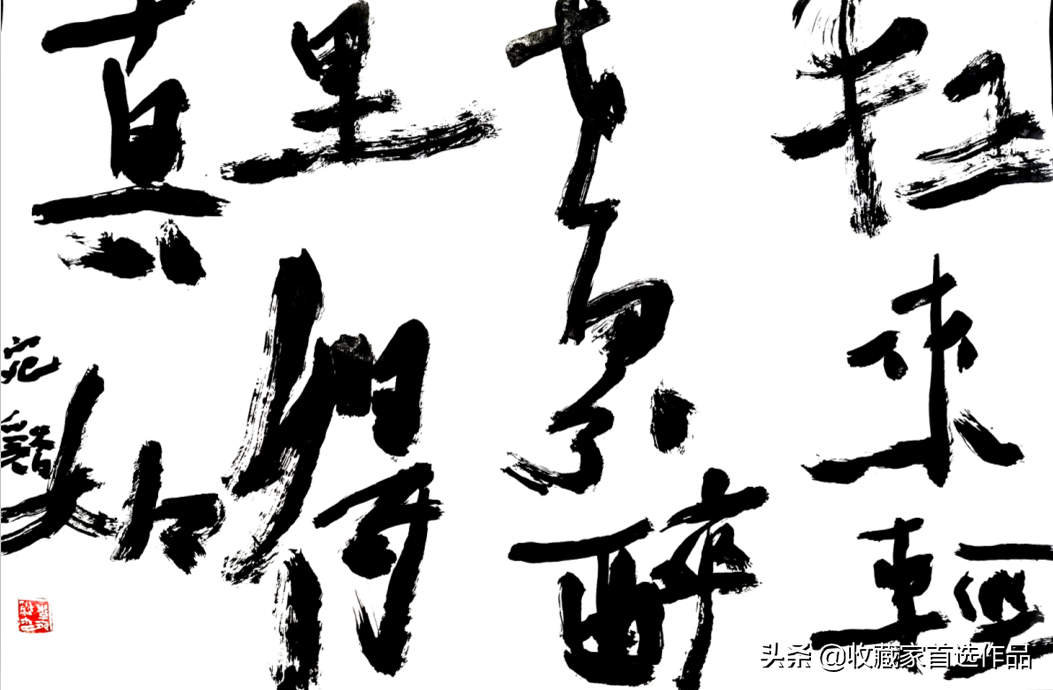 狂來輕
世界醉
里得
真如
头条 @收藏家首选作品